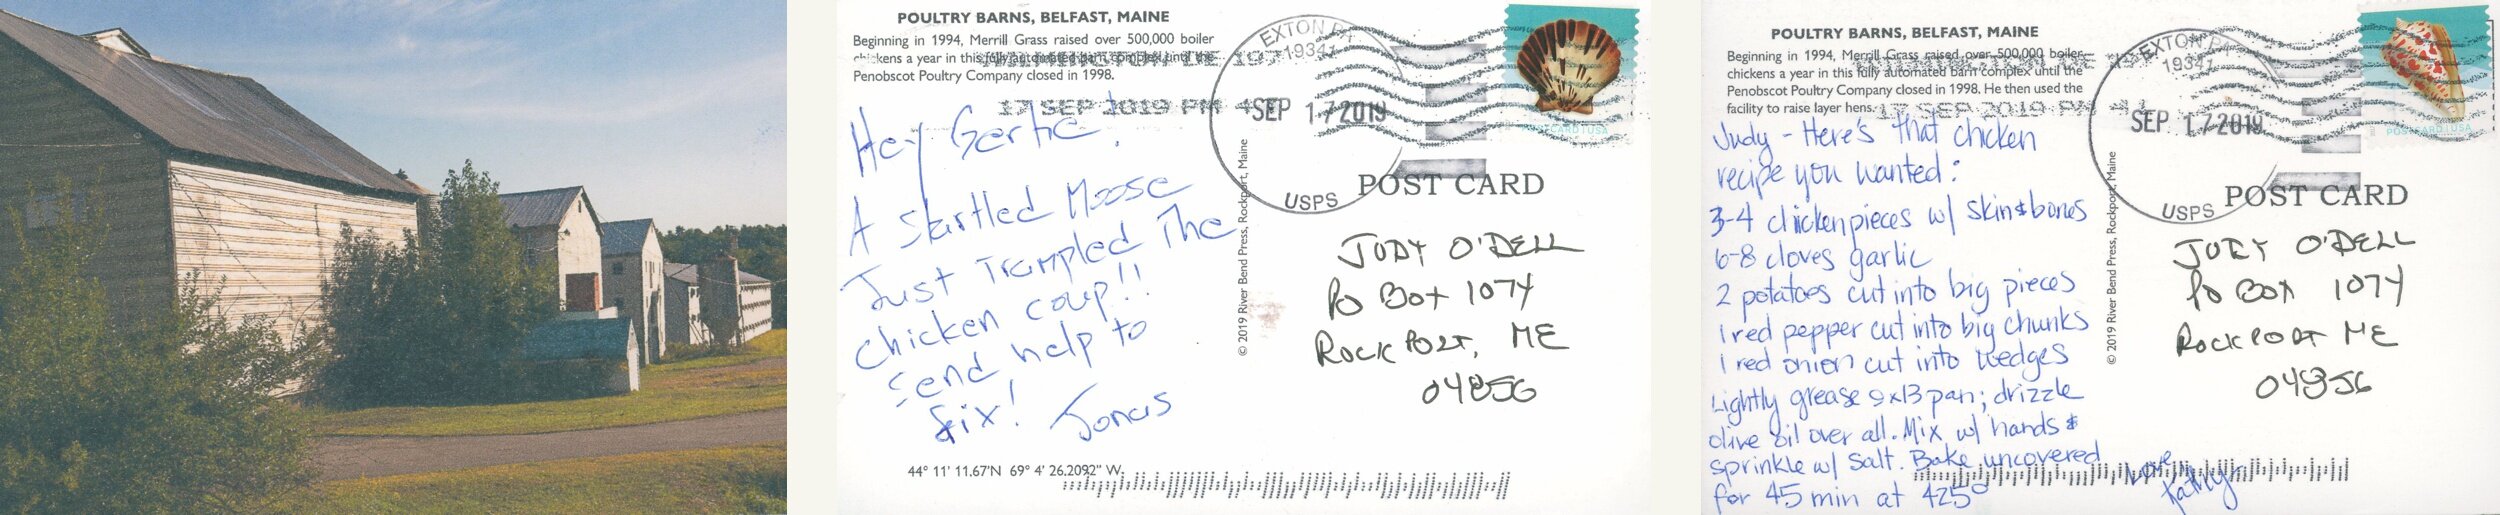 POULTRY BARNS, BELFAST, MAINE
Beginning in 1994, Merrill Grass raised over 500,000 boiler
chickens a year in this fully automated barn complex until the
Penobscot Poultry Company closed in 1998.
WILMINGTON DE 197
17 SEP 2019 PM 4
EXTON PA
19341
SEP 17 2019
USPS
POSTCARD | USA
Hey Gertie!
A startled Moose
Just Trampled The
chicken coup!!
send help to
fix! Jonas
44° 11' 11.67'N 69° 4' 26.2092" W.
© 2019 River Bend Press, Rockport, Maine
POST CARD
JUDY O'DELL
PO Box 1074
ROCKPORT, ME
04856
POULTRY BARNS, BELFAST, MAINE
Beginning in 1994, Merrill Grass raised over 500,000 boiler
chickens a year in this fully automated barn complex until the
Penobscot Poultry Company closed in 1998. He then used the
facility to raise layer hens.
17 SEP 2019 PM 4
EXTON PA
19341
SEP 17 2019
USPS
POSTCARD | USA
Judy - Here's that chicken
recipe you wanted:
3-4 chicken pieces w/ skin & bones
6-8 cloves garlic
2 potatoes cut into big pieces
1 red pepper cut into big chunks
1 red onion cut into wedges
Lightly grease 9x13 pan; drizzle
olive oil over all. Mix w/ hands &
sprinkle w/ salt. Bake uncovered
for 45 min at 425°
Love,
Kathy
© 2019 River Bend Press, Rockport, Maine
POST CARD
JUDY O'DELL
PO BOX 1074
ROCKPORT ME
04856